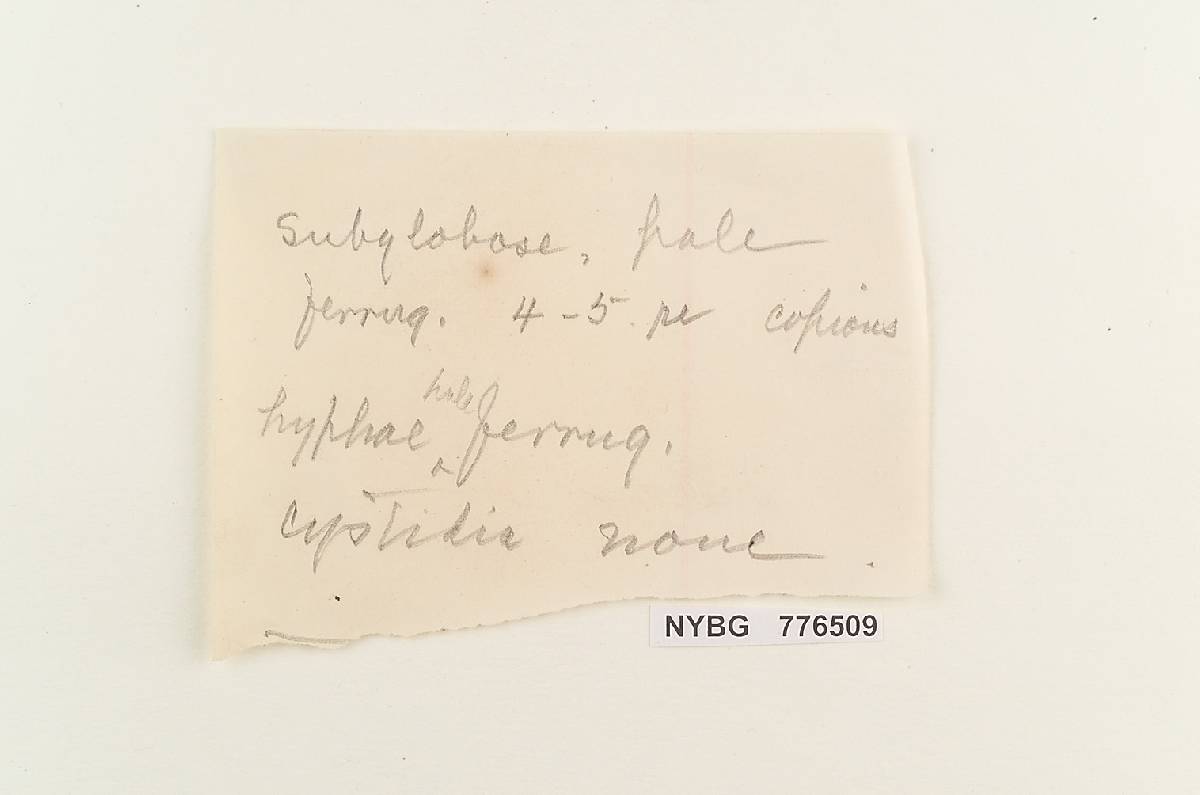 subglobose, pale
ferrug. 4-5 µ copious
hyphae ^pale ferrug.
cystidia none.
NYBG 776509